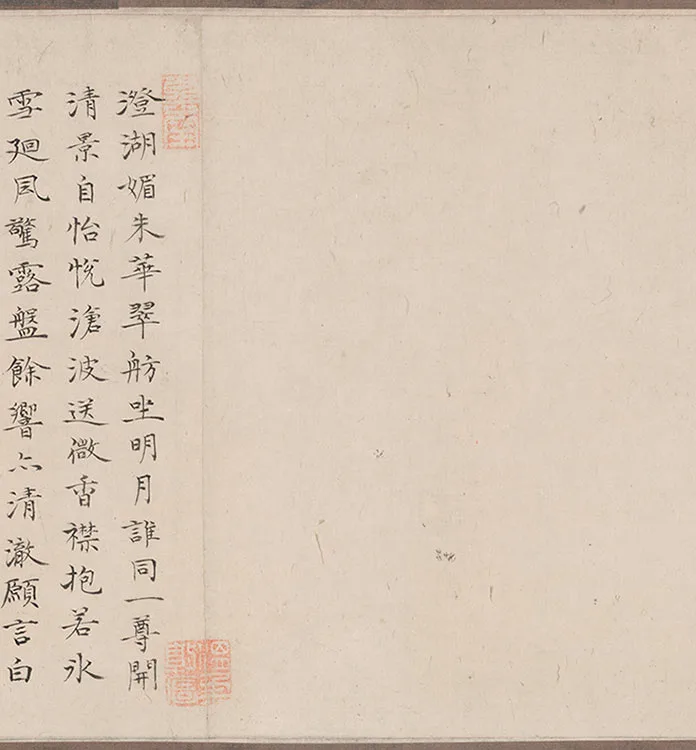 澄湖媚朱華翠舫坐明月誰同一尊開
清景自怡悅滄波送微香襟抱若冰
雪迴風驚露盤餘響亦清澈願言白